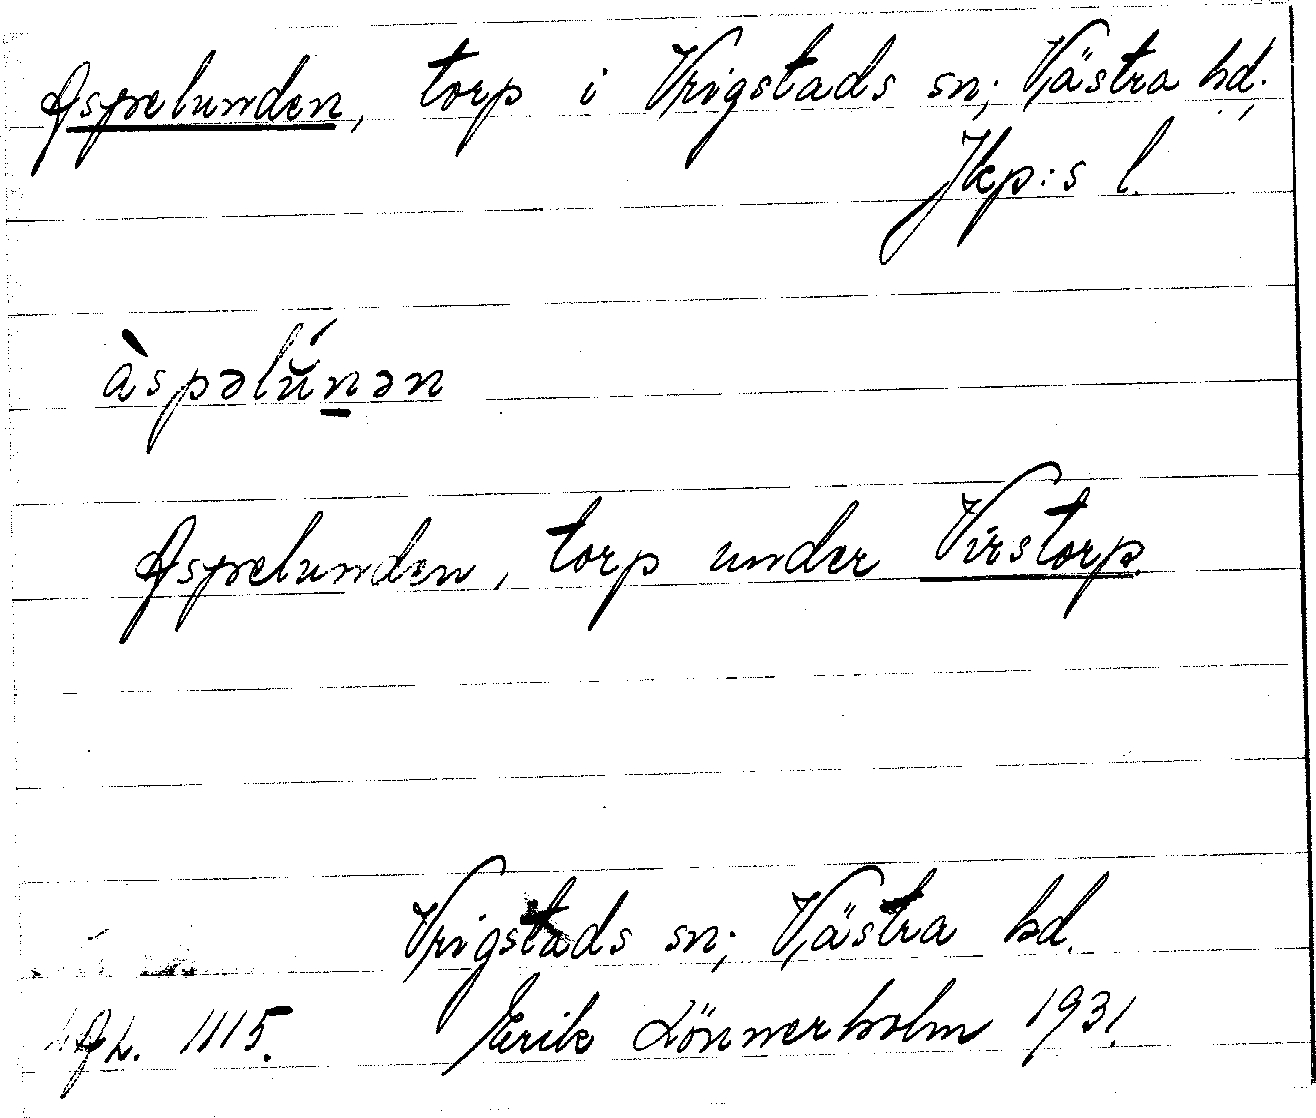 Aspelunden, torp i Vrigstads sn; Västra hd.,
Jkp:s l.
àspəlŭ́n̲ən
Aspelunden, torp under Virstorp.
Vrigstads sn; Västra hd.
1115. Erik Lönnerholm 1931.